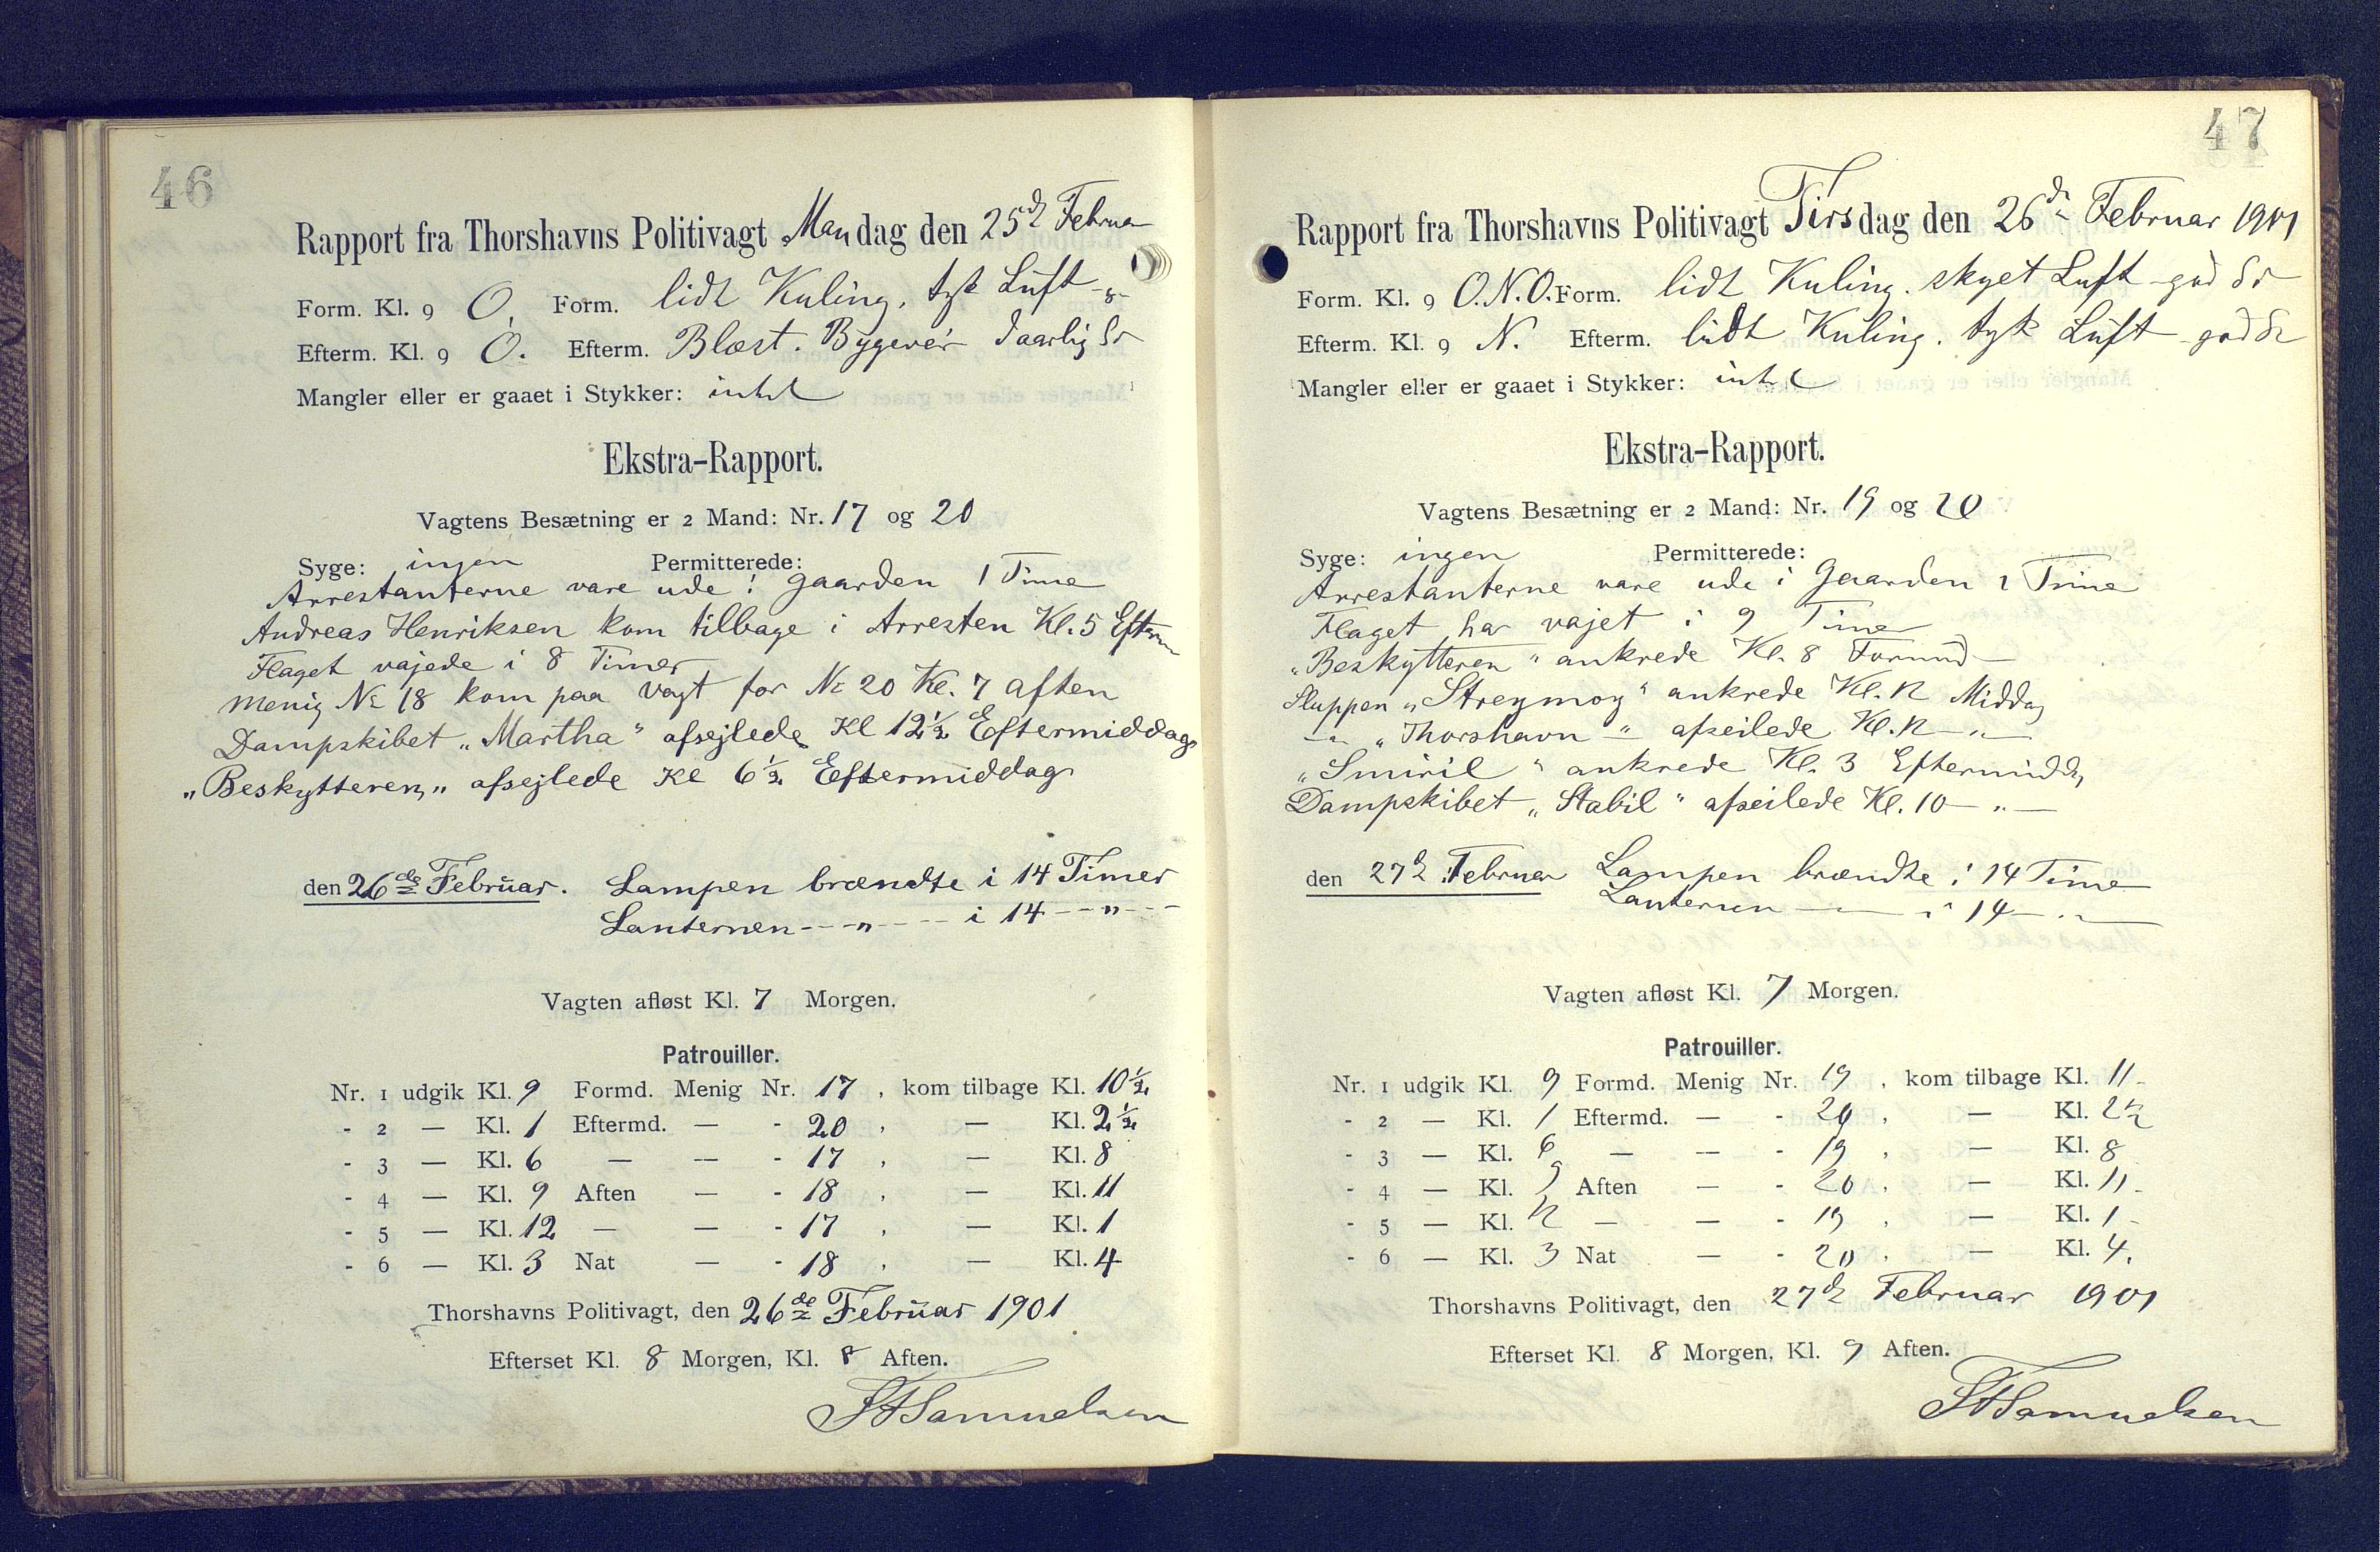 46
Rapport fra Thorshavns Politivagt Mandag den 25de Februar
Form. Kl. 9 O. Form. lidt Kuling. tyk Luft
Efterm. Kl. 9 O. Efterm. Blæst. Bygevér daarlig
Mangler eller er gaaet i Stykker: intet
Ekstra-Rapport.
Vagtens Besætning er 2 Mand: Nr. 17 og 20
Syge: ingen Permitterede:
Arrestanterne vare ude i Gaarden 1 Time
Andreas Henriksen kom tilbage i Arresten Kl. 5 Efterm
Flaget vajede i 8 Timer
Menig No 18 kom paa Vagt for No 20 Kl. 7 aften
Dampskibet „Martha" afsejlede Kl 12½ Eftermiddag
„Beskytteren„ afsejlede Kl 6½ Eftermiddag
den 26de Februar. Lampen brændte i 14 Timer
Lanternen - - „ - - - i 14 - - „ - -
Vagten afløst Kl. 7 Morgen.
Patrouiller.
Nr. 1 udgik Kl. 9 Formd. Menig Nr. 17, kom tilbage Kl. 10½
- 2 — Kl. 1 Eftermd. — - 20, — Kl. 2½
- 3 — Kl. 6 — — - 17, — Kl. 8
- 4 — Kl. 9 Aften — - 18, — Kl. 11
- 5 — Kl. 12 — — - 17, — Kl. 1
- 6 — Kl. 3 Nat — - 18, — Kl. 4
Thorshavns Politivagt, den 26de Februar 1901
Efterset Kl. 8 Morgen, Kl. 8 Aften.
Samuelsen
47
Rapport fra Thorshavns Politivagt Tirsdag den 26de Februar 1901
Form. Kl. 9 O.N.O. Form. lidt Kuling. skyet Luft - god
Efterm. Kl. 9 N. Efterm. lidt Kuling. tyk Luft - god
Mangler eller er gaaet i Stykker: intet
Ekstra-Rapport.
Vagtens Besætning er 2 Mand: Nr. 19 og 20
Syge: ingen Permitterede:
Arrestanterne vare ude i Gaarden 1 Time
Flaget har vajet i 9 Timer
„Beskytteren" ankrede Kl. 8 Formd
Sluppen „Streymoy" ankrede Kl. 12 Middag
— „ „Thorshavn" afseilede Kl. 12 — „ —
„Smiril" ankrede Kl. 3 Eftermidd
Dampskibet „Stabil" afseilede Kl. 10 — „ —
den 27de Februar Lampen brændte i 14 Time
Lanternen — „ — i 14 — „ —
Vagten afløst Kl. 7 Morgen.
Patrouiller.
Nr. 1 udgik Kl. 9 Formd. Menig Nr. 19, kom tilbage Kl. 11
- 2 — Kl. 1 Eftermd. — - 20, — Kl. 2½
- 3 — Kl. 6 — — - 19, — Kl. 8
- 4 — Kl. 9 Aften — - 20, — Kl. 11
- 5 — Kl. 12 — — - 19, — Kl. 1
- 6 — Kl. 3 Nat — - 20, — Kl. 4.
Thorshavns Politivagt, den 27de Februar 1901
Efterset Kl. 8 Morgen, Kl. 9 Aften.
Samuelsen